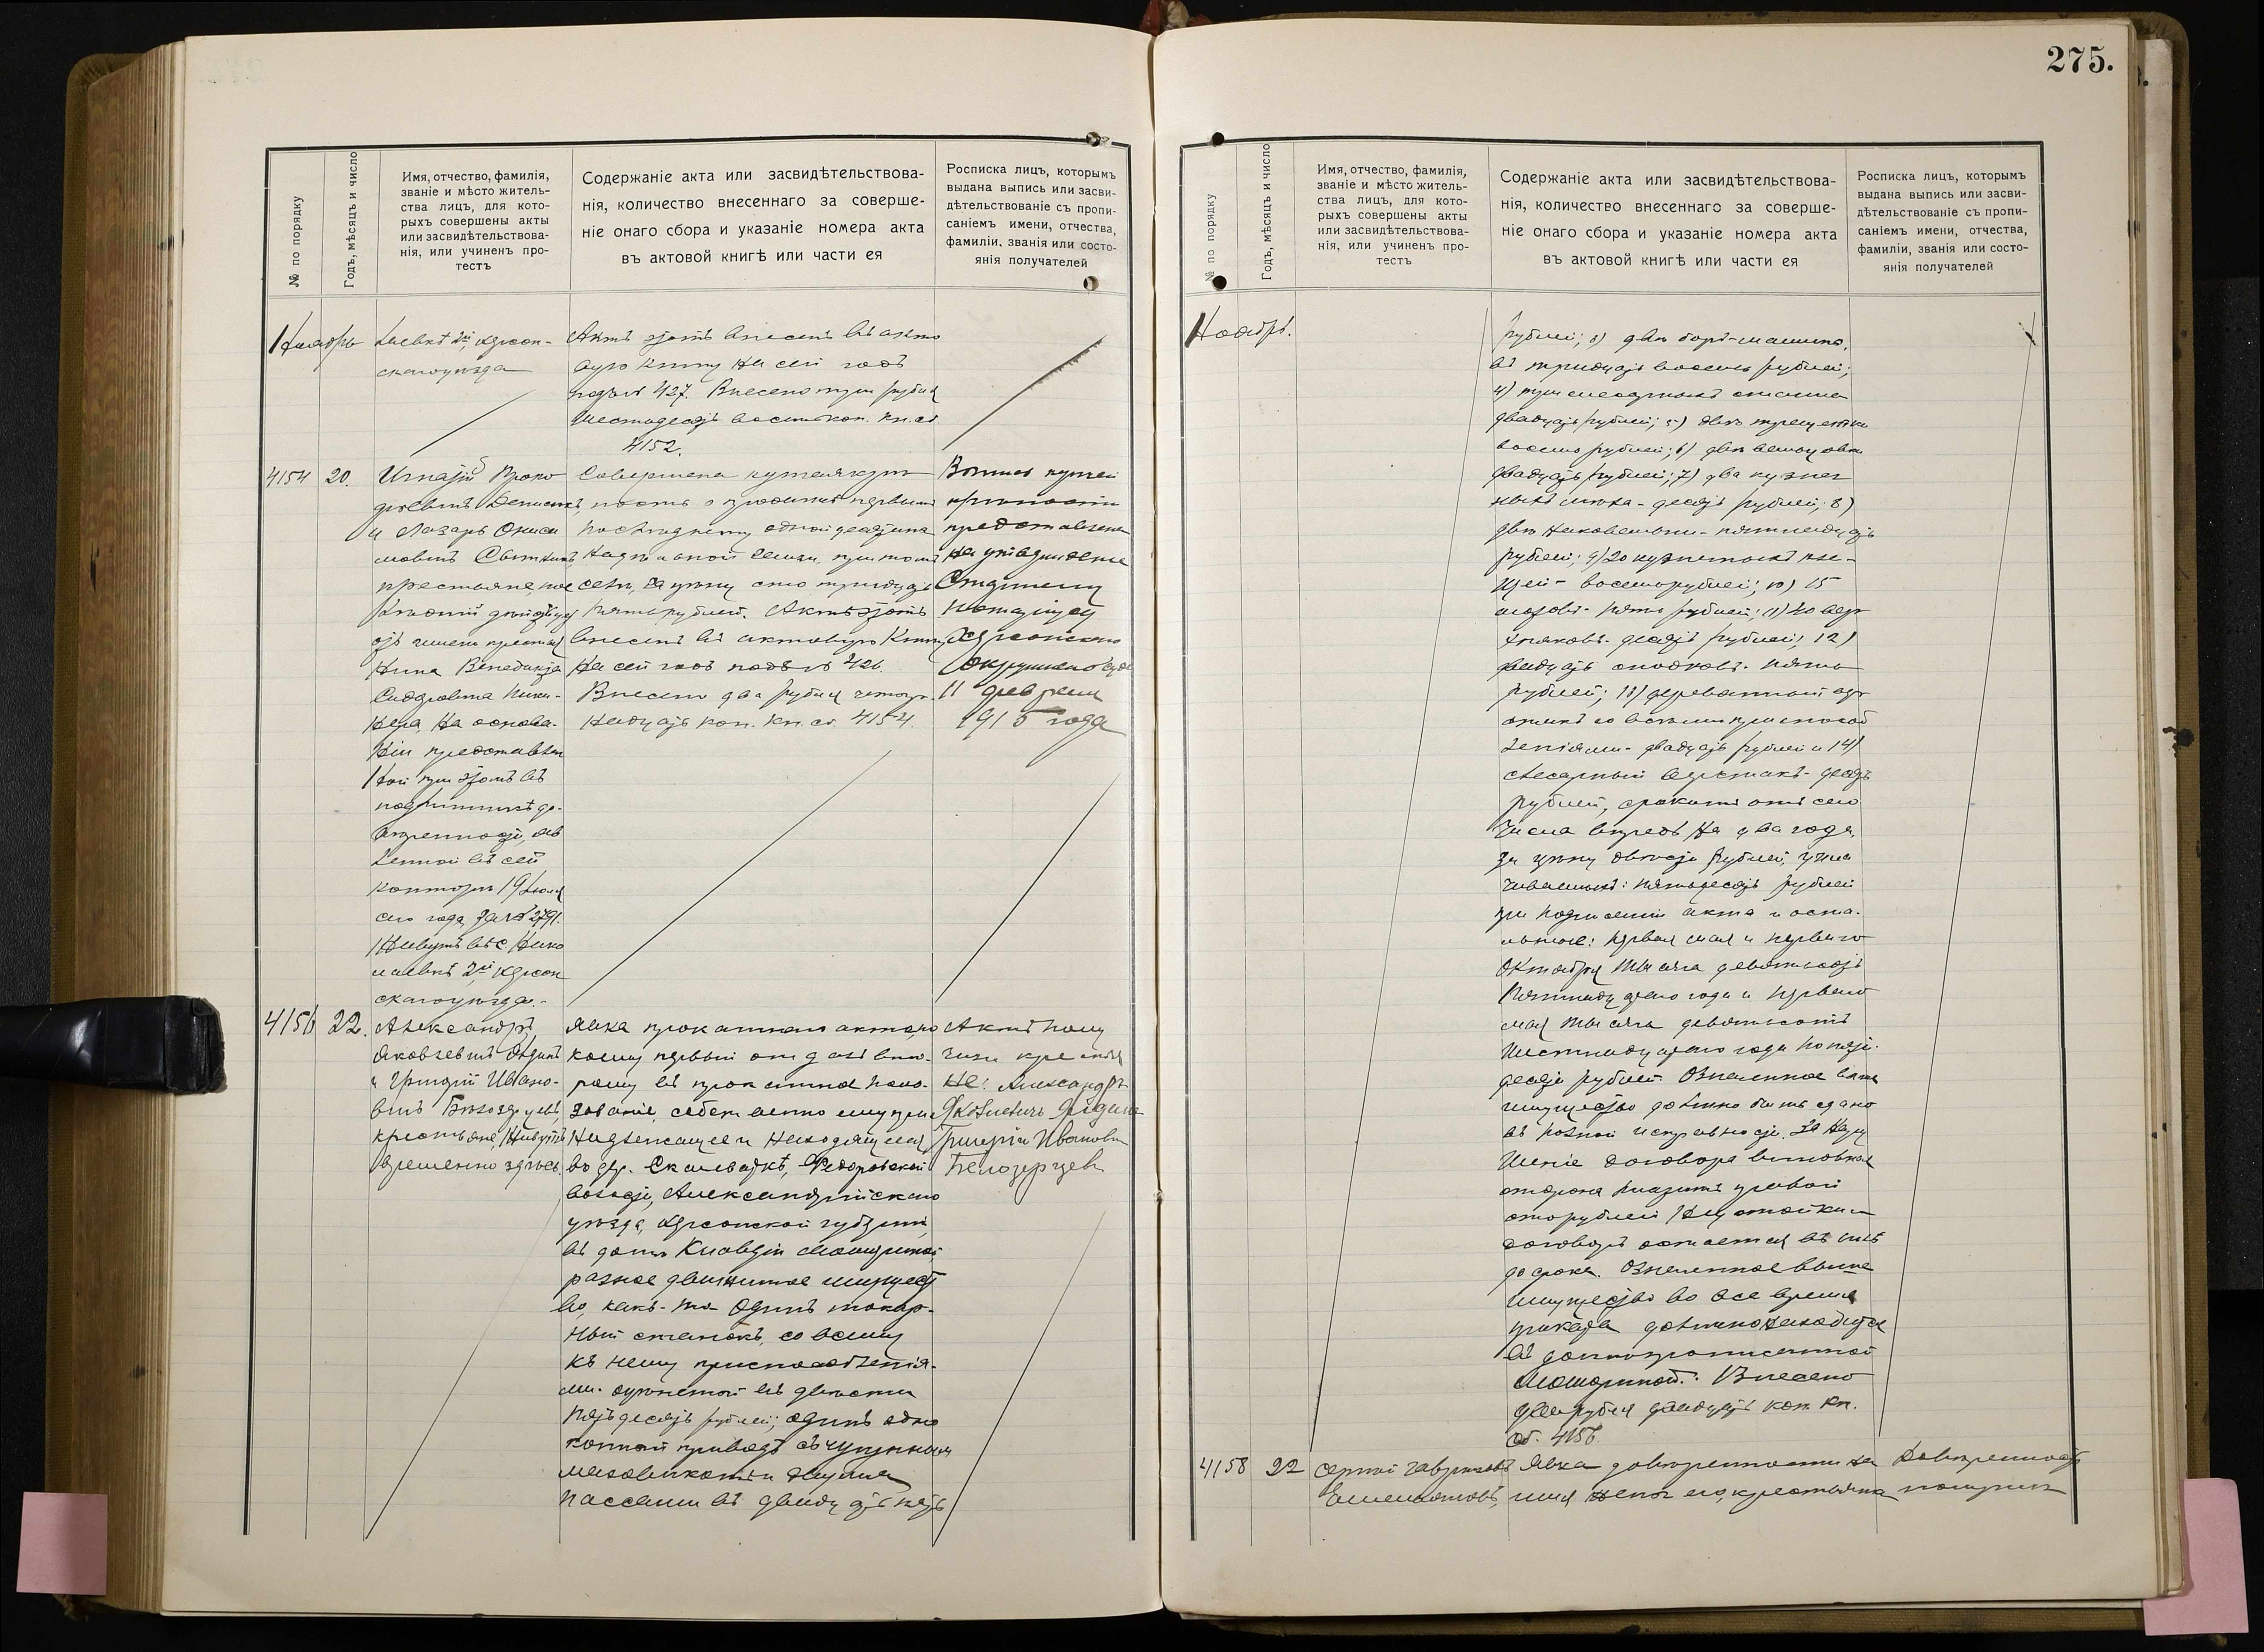 275.
№ по порядку
Годъ, мѣсяцъ и число
Имя, отчество, фамилія,
званіе и мѣсто житель-
ства лицъ, для кото-
рыхъ совершены акты
или засвидѣтельствова-
нія, или учиненъ про-
тестъ
Содержаніе акта или засвидѣтельствова-
нія, количество внесеннаго за соверше-
ніе онаго сбора и указаніе номера акта
въ актовой книгѣ или части ея
Росписка лицъ, которымъ
выдана выпись или засви-
дѣтельствованіе съ пропи-
саніемъ имени, отчества,
фамиліи, званія или состо-
янія получателей
Ноябрь
лаевкѣ 2й, Херсон-
скаго уѣзда
Актъ этотъ внесенъ въ акто
вую книгу на сей годъ
подъ № 427. Внесено три рубля
шестьдесятъ восемь коп. кн. сб.
4152.
4154
20.
Игнатій Проко
фьевичъ
и Лазарь Ониси
мовичъ
крестьяне,
Анна Венедикто
Сидоровича
нера, на основа-
ніи представлен
ной при этомъ въ
подлинникѣ до-
вѣренности, яв
ленной въ сей
конторѣ 19 Іюля
сего года, за № 2791.
Живутъ въ с. Нико
лаевкѣ 2й Херсон
скаго уѣзда.-
Совершена купчая крѣ
пость о продажѣ первымъ
послѣднему одной десятины
надѣльной земли, при томъ
селѣ, за цѣну сто тридцать
пять рублей. Актъ этотъ
внесенъ въ актовую книгу
на сей годъ подъ № 426.
Внесено два рубля четыр-
надцать коп. кн. сб. 4154.
Выпись купчей
крѣпости
представлена
на утвержденіе
Старшему
Нотаріусу
Херсонскаго
Окружнаго Суда
11 февраля
1915 года
4156
22.
Александръ
Яковлевичъ
и Григорій Ивано-
вичъ Бѣлозерцевъ,
крестьяне, живутъ
временно здѣсь.
Явка прокатнаго акта, по
коему первый отдалъ вто-
рому въ прокатное поль-
зованіе, собственно ему при
надлежащее и находящееся
въ дер. Скалеваткѣ, Федоровской
волости, Александрійскаго
уѣзда, Херсонской губерніи,
въ домѣ Клавдіи Мошориной
разное движимое имущест
во, какъ-то одинъ токар-
ный станокъ, со всѣми
къ нему приспособленія-
ми- оцѣненный въ двѣсти
пятьдесятъ рублей; одинъ одно
конный приводъ съ чугуннымъ
маховикомъ и двумя
пассами въ двадцать пять
Актъ полу
чили крестья
не: Александръ
Яковлевичъ
Григорій Иванович
Белозерцев
№ по порядку
Годъ, мѣсяцъ и число
Имя, отчество, фамилія,
званіе и мѣсто житель-
ства лицъ, для кото-
рыхъ совершены акты
или засвидѣтельствова-
нія, или учиненъ про-
тестъ
Содержаніе акта или засвидѣтельствова-
нія, количество внесеннаго за соверше-
ніе онаго сбора и указаніе номера акта
въ актовой книгѣ или части ея
Росписка лицъ, которымъ
выдана выпись или засви-
дѣтельствованіе съ пропи-
саніемъ имени, отчества,
фамиліи, званія или состо-
янія получателей
Ноябрь.
рублей; 3) двѣ боръ-машины,
въ тридцать восемь рублей;
4) три слесарныхъ
двадцать рублей; 5) двѣ трещетки
восемь рублей; 6)
двадцать рублей; 7) два кузнеч
ныхъ мѣха- десять рублей; 8)
двѣ наковальни- пятнадцать
рублей; 9) 20 кузнечныхъ кле-
щей- восемь рублей; 10) 15
молотовъ- пять рублей; 11) 40 вер
хняковъ- десять рублей; 12)
двадцать сподковъ- пять
рублей; 13) деревянный
со всѣми приспособ
леніями- двадцать рублей и 14)
слесарный верстакъ- десять
рублей, срокомъ отъ сего
числа впредь на два года,
за цѣну двѣсти рублей, упла
чиваемыхъ: пятьдесятъ рублей
при подписаніи акта и оста-
льные: перваго мая и перваго
октября тысяча девятьсотъ
пятнадцатаго года и перваго
мая тысяча девятьсотъ
шестнадцатаго года по пять-
десятъ рублей. Означенное выше
имущество должно быть сдано
въ полной исправности. За нару
шеніе договора виновная
сторона платитъ правой
сто рублей неустойки и
договоръ остается въ силѣ
до срока. Означенное выше
имущество во все время
проката должно находиться
въ домѣ
Мошориной. Внесено
два рубля двадцать коп. кн.
сб. 4156.
4158
22
Сергѣй Гавриловъ
Емельяновъ,
Явка довѣренности на
имя жены его, крестьянка
Довѣренность
получилъ